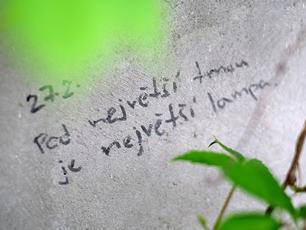 27.2.
Pod největší tmou
je největší lampa.